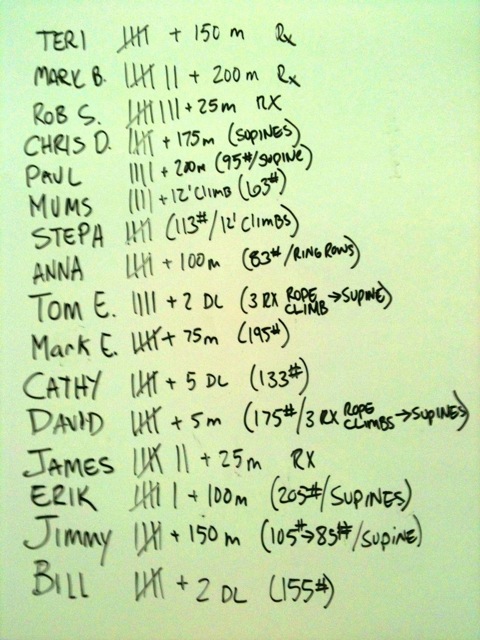 TERI 卌 + 150 m Rx
MARK B. 卌 || + 200 m Rx
ROB S. 卌 ||| + 25 m RX
CHRIS D. 卌 + 175 m (SUPINES)
PAUL |||| + 200m (95#/SUPINE)
MUMS |||| + 12' CLIMB (63#)
STEPA 卌 (113#/12' CLIMBS)
ANNA 卌 + 100 m (83#/RING ROWS)
TOM E. |||| + 2 DL (3 RX ROPE CLIMB → SUPINE)
MARK E. 卌 + 75 m (195#)
CATHY 卌 + 5 DL (133#)
DAVID 卌 + 5 m (175#/3 RX ROPE CLIMBS → SUPINES)
JAMES 卌 || + 25 m RX
ERIK 卌 | + 100m (205#/SUPINES)
Jimmy 卌 + 150 m (105#→85#/SUPINE)
BILL 卌 + 2 DL (155#)